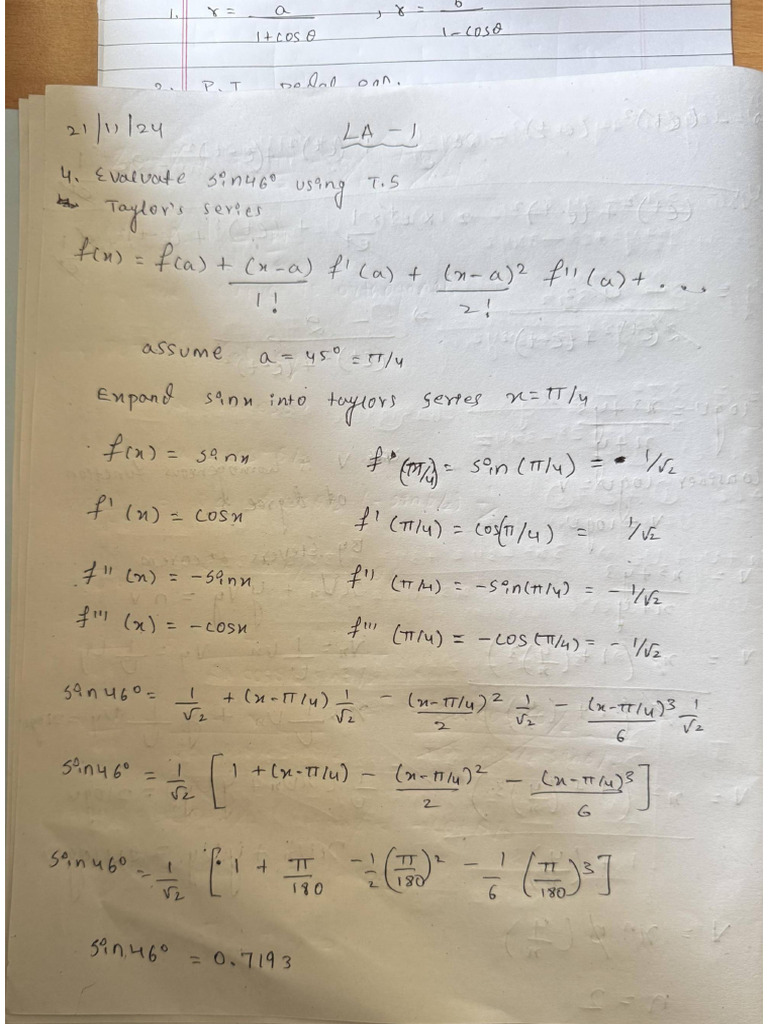 1. r = a/(1+cosθ) , r = b/(1-cosθ)
2. P.T pedal
21/11/24 LA - 1
4. Evaluate sin46° using T.S
Taylor's series
f(x) = f(a) + (x-a)/1! f'(a) + (x-a)²/2! f''(a) + ...
assume a = 45° = π/4
Expand sinx into taylors series x = π/4
f(x) = sinx f(π/4) = sin(π/4) = 1/√2
f'(x) = cosx f'(π/4) = cos(π/4) = 1/√2
f''(x) = -sinx f''(π/4) = -sin(π/4) = -1/√2
f'''(x) = -cosx f'''(π/4) = -cos(π/4) = -1/√2
sin46° = 1/√2 + (x-π/4) 1/√2 - (x-π/4)²/2 1/√2 - (x-π/4)³/6 1/√2
sin46° = 1/√2 [1 + (x-π/4) - (x-π/4)²/2 - (x-π/4)³/6]
sin46° = 1/√2 [1 + π/180 - 1/2 (π/180)² - 1/6 (π/180)³]
sin46° = 0.7193